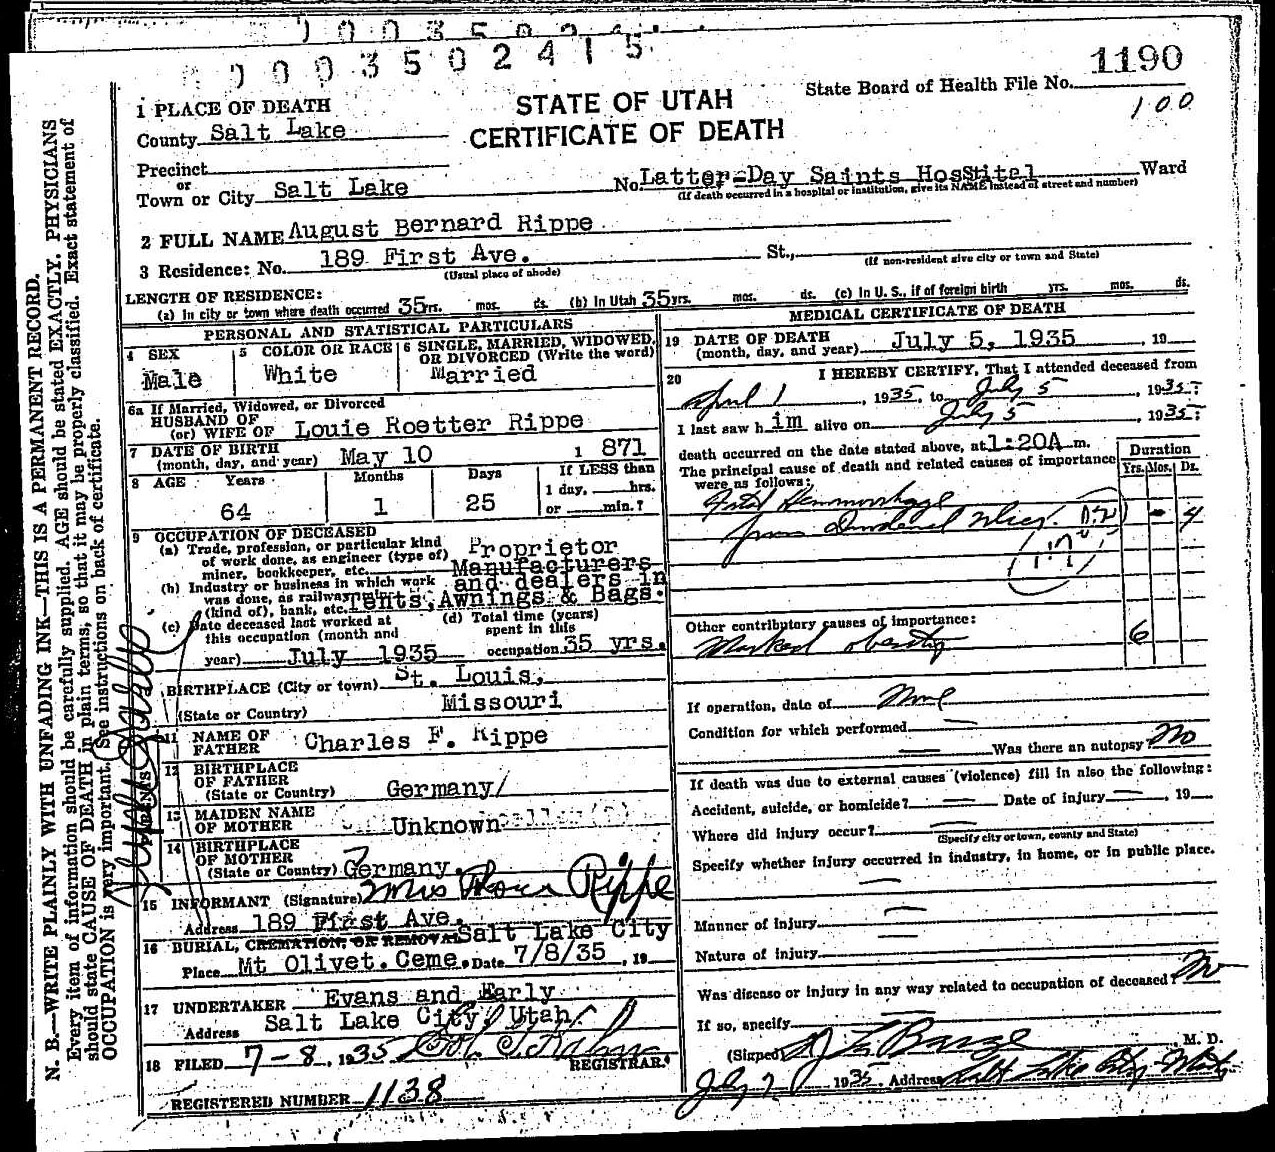 0003502415
1190
State Board of Health File No.
100
STATE OF UTAH
CERTIFICATE OF DEATH
1 PLACE OF DEATH
County Salt Lake
Precinct
or
Town or City Salt Lake
No. Latter-Day Saints HosStital Ward
(If death occurred in a hospital or institution, give its NAME instead of street and number)
2 FULL NAME August Bernard Rippe
3 Residence: No. 189 First Ave. St.,
(Usual place of abode)
(If non-resident give city or town and State)
LENGTH OF RESIDENCE:
(a) In city or town where death occurred 35 yrs. mos. ds. (b) In Utah 35 yrs. mos. ds. (c) In U. S., if of foreign birth yrs. mos. ds.
PERSONAL AND STATISTICAL PARTICULARS
4 SEX
Male
5 COLOR OR RACE
White
6 SINGLE, MARRIED, WIDOWED,
OR DIVORCED (Write the word)
Married
6a If Married, Widowed, or Divorced
HUSBAND OF
(or) WIFE OF Louie Roetter Rippe
7 DATE OF BIRTH
(month, day, and year) May 10 1 871
8 AGE Years Months Days
If LESS than
1 day, hrs.
or min.?
64 1 25
9 OCCUPATION OF DECEASED
(a) Trade, profession, or particular kind
of work done, as engineer (type of)
miner, bookkeeper, etc.
Proprietor
(b) Industry or business in which work
was done, as railway
(kind of), bank, etc.
Manufacturers
and dealers in
Tents, Awnings & Bags.
(c) Date deceased last worked at
this occupation (month and
year) July 1935
(d) Total time (years)
spent in this
occupation 35 yrs.
10 BIRTHPLACE (City or town) St. Louis,
(State or Country) Missouri
PARENTS
11 NAME OF
FATHER Charles F. Rippe
12 BIRTHPLACE
OF FATHER
(State or Country) Germany
13 MAIDEN NAME
OF MOTHER Unknown
14 BIRTHPLACE
OF MOTHER
(State or Country) Germany.
15 INFORMANT (Signature) Mrs Rippe
Address 189 First Ave.
Salt Lake City
16 BURIAL, CREMATION, OR REMOVAL
Place Mt Olivet. Ceme. Date 7/8/35, 19
17 UNDERTAKER Evans and Early
Address Salt Lake City, Utah.
18 FILED 7-8, 1935
REGISTRAR.
REGISTERED NUMBER 1138
MEDICAL CERTIFICATE OF DEATH
19 DATE OF DEATH
(month, day, and year) July 5, 1935, 19
20 I HEREBY CERTIFY, That I attended deceased from
April 1, 1935, to July 5, 1935;
I last saw h im alive on July 5, 1935;
death occurred on the date stated above, at 1:20A m.
The principal cause of death and related causes of importance
were as follows:
Duration
Yrs. Mos. Ds.
Fatal Hemmorrhage
from Duodenal Ulcer. - 4
Other contributory causes of importance:
Marked obesity 6
If operation, date of None
Condition for which performed
Was there an autopsy No
If death was due to external causes (violence) fill in also the following:
Accident, suicide, or homicide? Date of injury , 19
Where did injury occur?
(Specify city or town, county and State)
Specify whether injury occurred in industry, in home, or in public place.
Manner of injury
Nature of injury
Was disease or injury in any way related to occupation of deceased? No
If so, specify
(Signed) M. D.
July 7, 1935. Address Salt Lake City
N. B.—WRITE PLAINLY WITH UNFADING INK—THIS IS A PERMANENT RECORD.
Every item of information should be carefully supplied. AGE should be stated EXACTLY. PHYSICIANS
should state CAUSE OF DEATH in plain terms, so that it may be properly classified. Exact statement of
OCCUPATION is very important. See instructions on back of certificate.